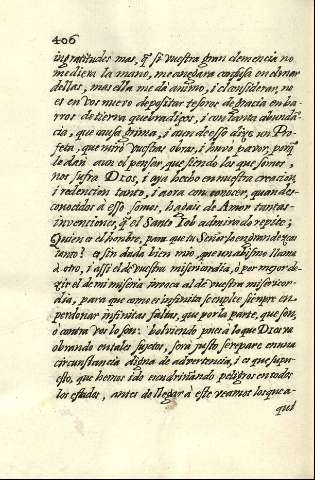 406
ingratitudes mas, q̃ si vuestra gran clemencia no
me diera la mano, me anegara confusa en el mar
dellas, mas ella me da animo, i el considerar, no
es en vos nuevo depositar tesoros de gracia en ba-
rros de tierra quebradiços, i con tanta abunda-
cia, que causa grima, i aun de esso dixo un Pro-
feta, que mirò vuestras obras, i huvo pavor, porq̃
le dan aun el pensar, que siendo los que somos,
nos sufra Dios, i aja hecho en nuestra creacion,
i redencion tanto, i aora con conocer, quan des-
conocidos à esso somos, hagais de Amor tantas
invenciones, q̃ el Santo Iob admirado repite;
Quien es el hombre, para que tu Señor lo engrandezcas
tanto? es, sin duda bien mio, que un abismo llama
à otro, i assi el de vuestra misericordia, ò por mejor de-
zir el de mi miseria invoca al de vuestra misericor-
dia, para que como es infinita se emplee siempre en
perdonar infinitas faltas, que por la parte, que son,
ò contra vos lo son: bolviendo pues à lo que Dios va
obrando en tales sujetos, serà justo se repare en una
circunstancia digna de advertencia, i es que supu-
esto, que hemos ido escudriñando peligros en todos
los estados, antes de llegar à este veamos los que a-
qui